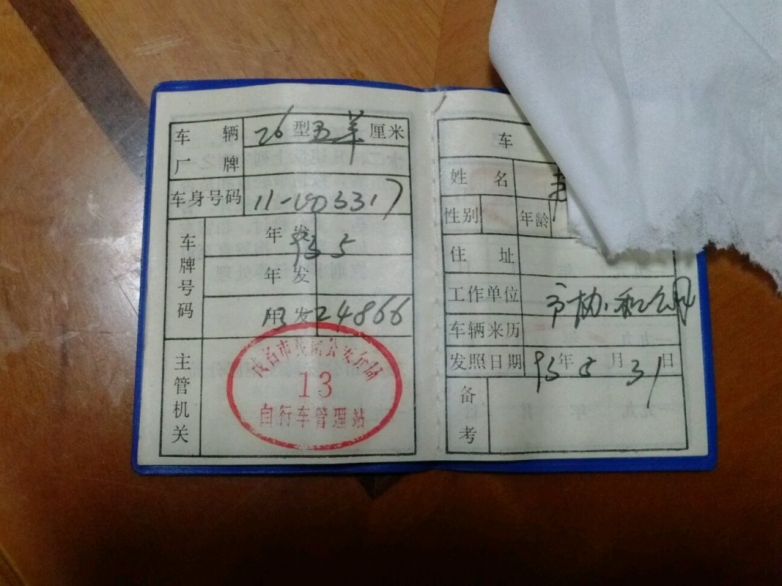 车辆厂牌 26型五羊厘米
车身号码 11-003317
车牌号码
年发 93 5
年发
年发 24866
主管机关
茂名市茂南公安分局
13
自行车管理站
车
姓名
性别 年龄
住址
工作单位 市协和公司
车辆来历
发照日期 93年5月31日
备考